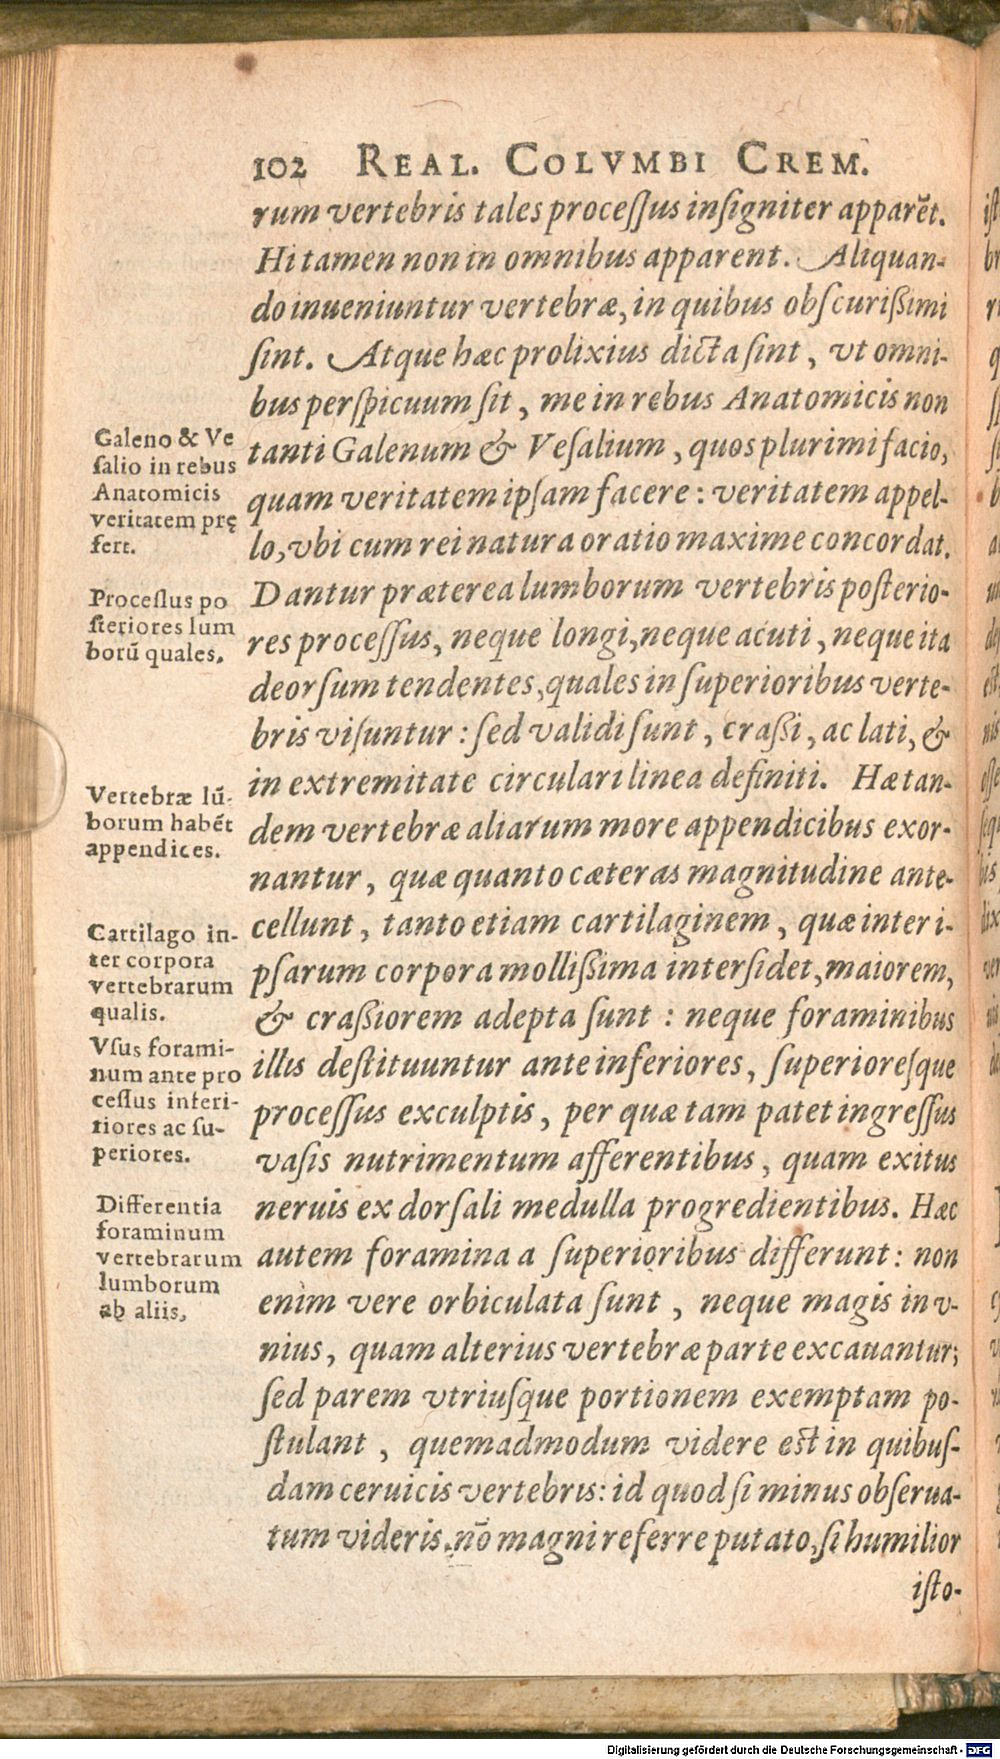 102 REAL. COLVMBI CREM.
rum vertebris tales proceſſus inſigniter apparēt.
Hi tamen non in omnibus apparent. Aliquan-
do inueniuntur vertebræ, in quibus obſcurißimi
ſint. Atque hæc prolixius dicta ſint, vt omni-
bus perſpicuum ſit, me in rebus Anatomicis non
tanti Galenum & Veſalium, quos plurimi facio,
quam veritatem ipſam facere: veritatem appel-
lo, vbi cum rei natura oratio maxime concordat.
Dantur præterea lumborum vertebris poſterio-
res proceſſus, neque longi, neque acuti, neque ita
deorſum tendentes, quales in ſuperioribus verte-
bris viſuntur: ſed validi ſunt, craßi, ac lati, &
in extremitate circulari linea definiti. Hæ tan-
dem vertebræ aliarum more appendicibus exor-
nantur, quæ quanto cæteras magnitudine ante-
cellunt, tanto etiam cartilaginem, quæ inter i-
pſarum corpora mollißima interſidet, maiorem,
& craßiorem adepta ſunt: neque foraminibus
illis deſtituuntur ante inferiores, ſuperioreſque
proceſſus exculptis, per quæ tam patet ingreſſus
vaſis nutrimentum afferentibus, quam exitus
neruis ex dorſali medulla progredientibus. Hæc
autem foramina a ſuperioribus differunt: non
enim vere orbiculata ſunt, neque magis in v-
nius, quam alterius vertebræ parte excauantur;
ſed parem vtriuſque portionem exemptam po-
ſtulant, quemadmodum videre eſt in quibuſ-
dam ceruicis vertebris: id quod ſi minus obſerua-
tum videris, nō magni referre putato, ſi humilior
iſto-
Galeno & Ve
ſalio in rebus
Anatomicis
veritatem prę
fert.
Proceſſus po
ſteriores lum
borū quales.
Vertebræ lū-
borum habēt
appendices.
Cartilago in-
ter corpora
vertebrarum
qualis.
Vſus forami-
num ante pro
ceſſus inferi-
riores ac ſu-
periores.
Differentia
foraminum
vertebrarum
lumborum
ab aliis,
Digitalisierung gefördert durch die Deutsche Forschungsgemeinschaft - DFG